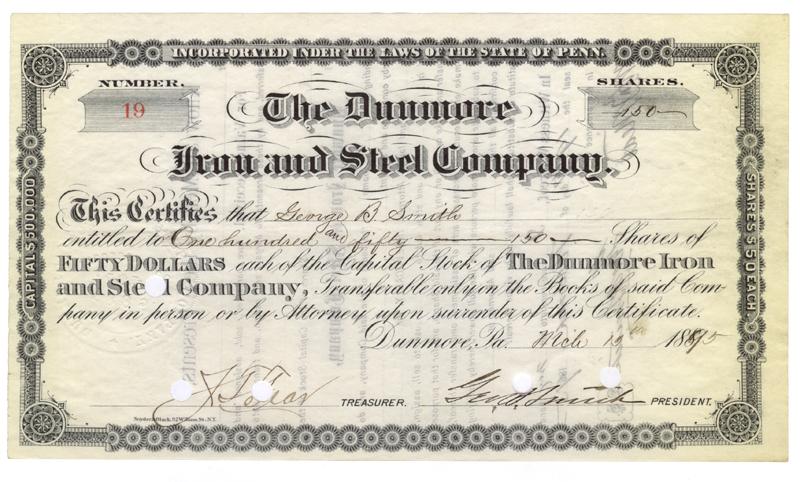 INCORPORATED UNDER THE LAWS OF THE STATE OF PENN.
NUMBER.
SHARES.
19
150
The Dunmore
Iron and Steel Company.
CAPITAL $500,000
SHARES $50 EACH
This Certifies that George B Smith
entitled to One hundred and fifty — 150 — Shares of
FIFTY DOLLARS each of the Capital Stock of The Dunmore Iron
and Steel Company, Transferable only on the Books of said Com-
pany in person or by Attorney upon surrender of this Certificate.
Dunmore, Pa. Mch 188
TREASURER.
Smith PRESIDENT.